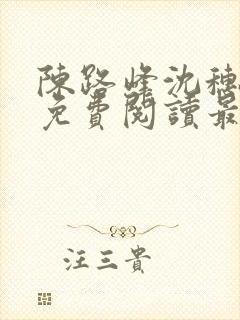 陳路峰沈穗
免費閱讀最
汪三貴